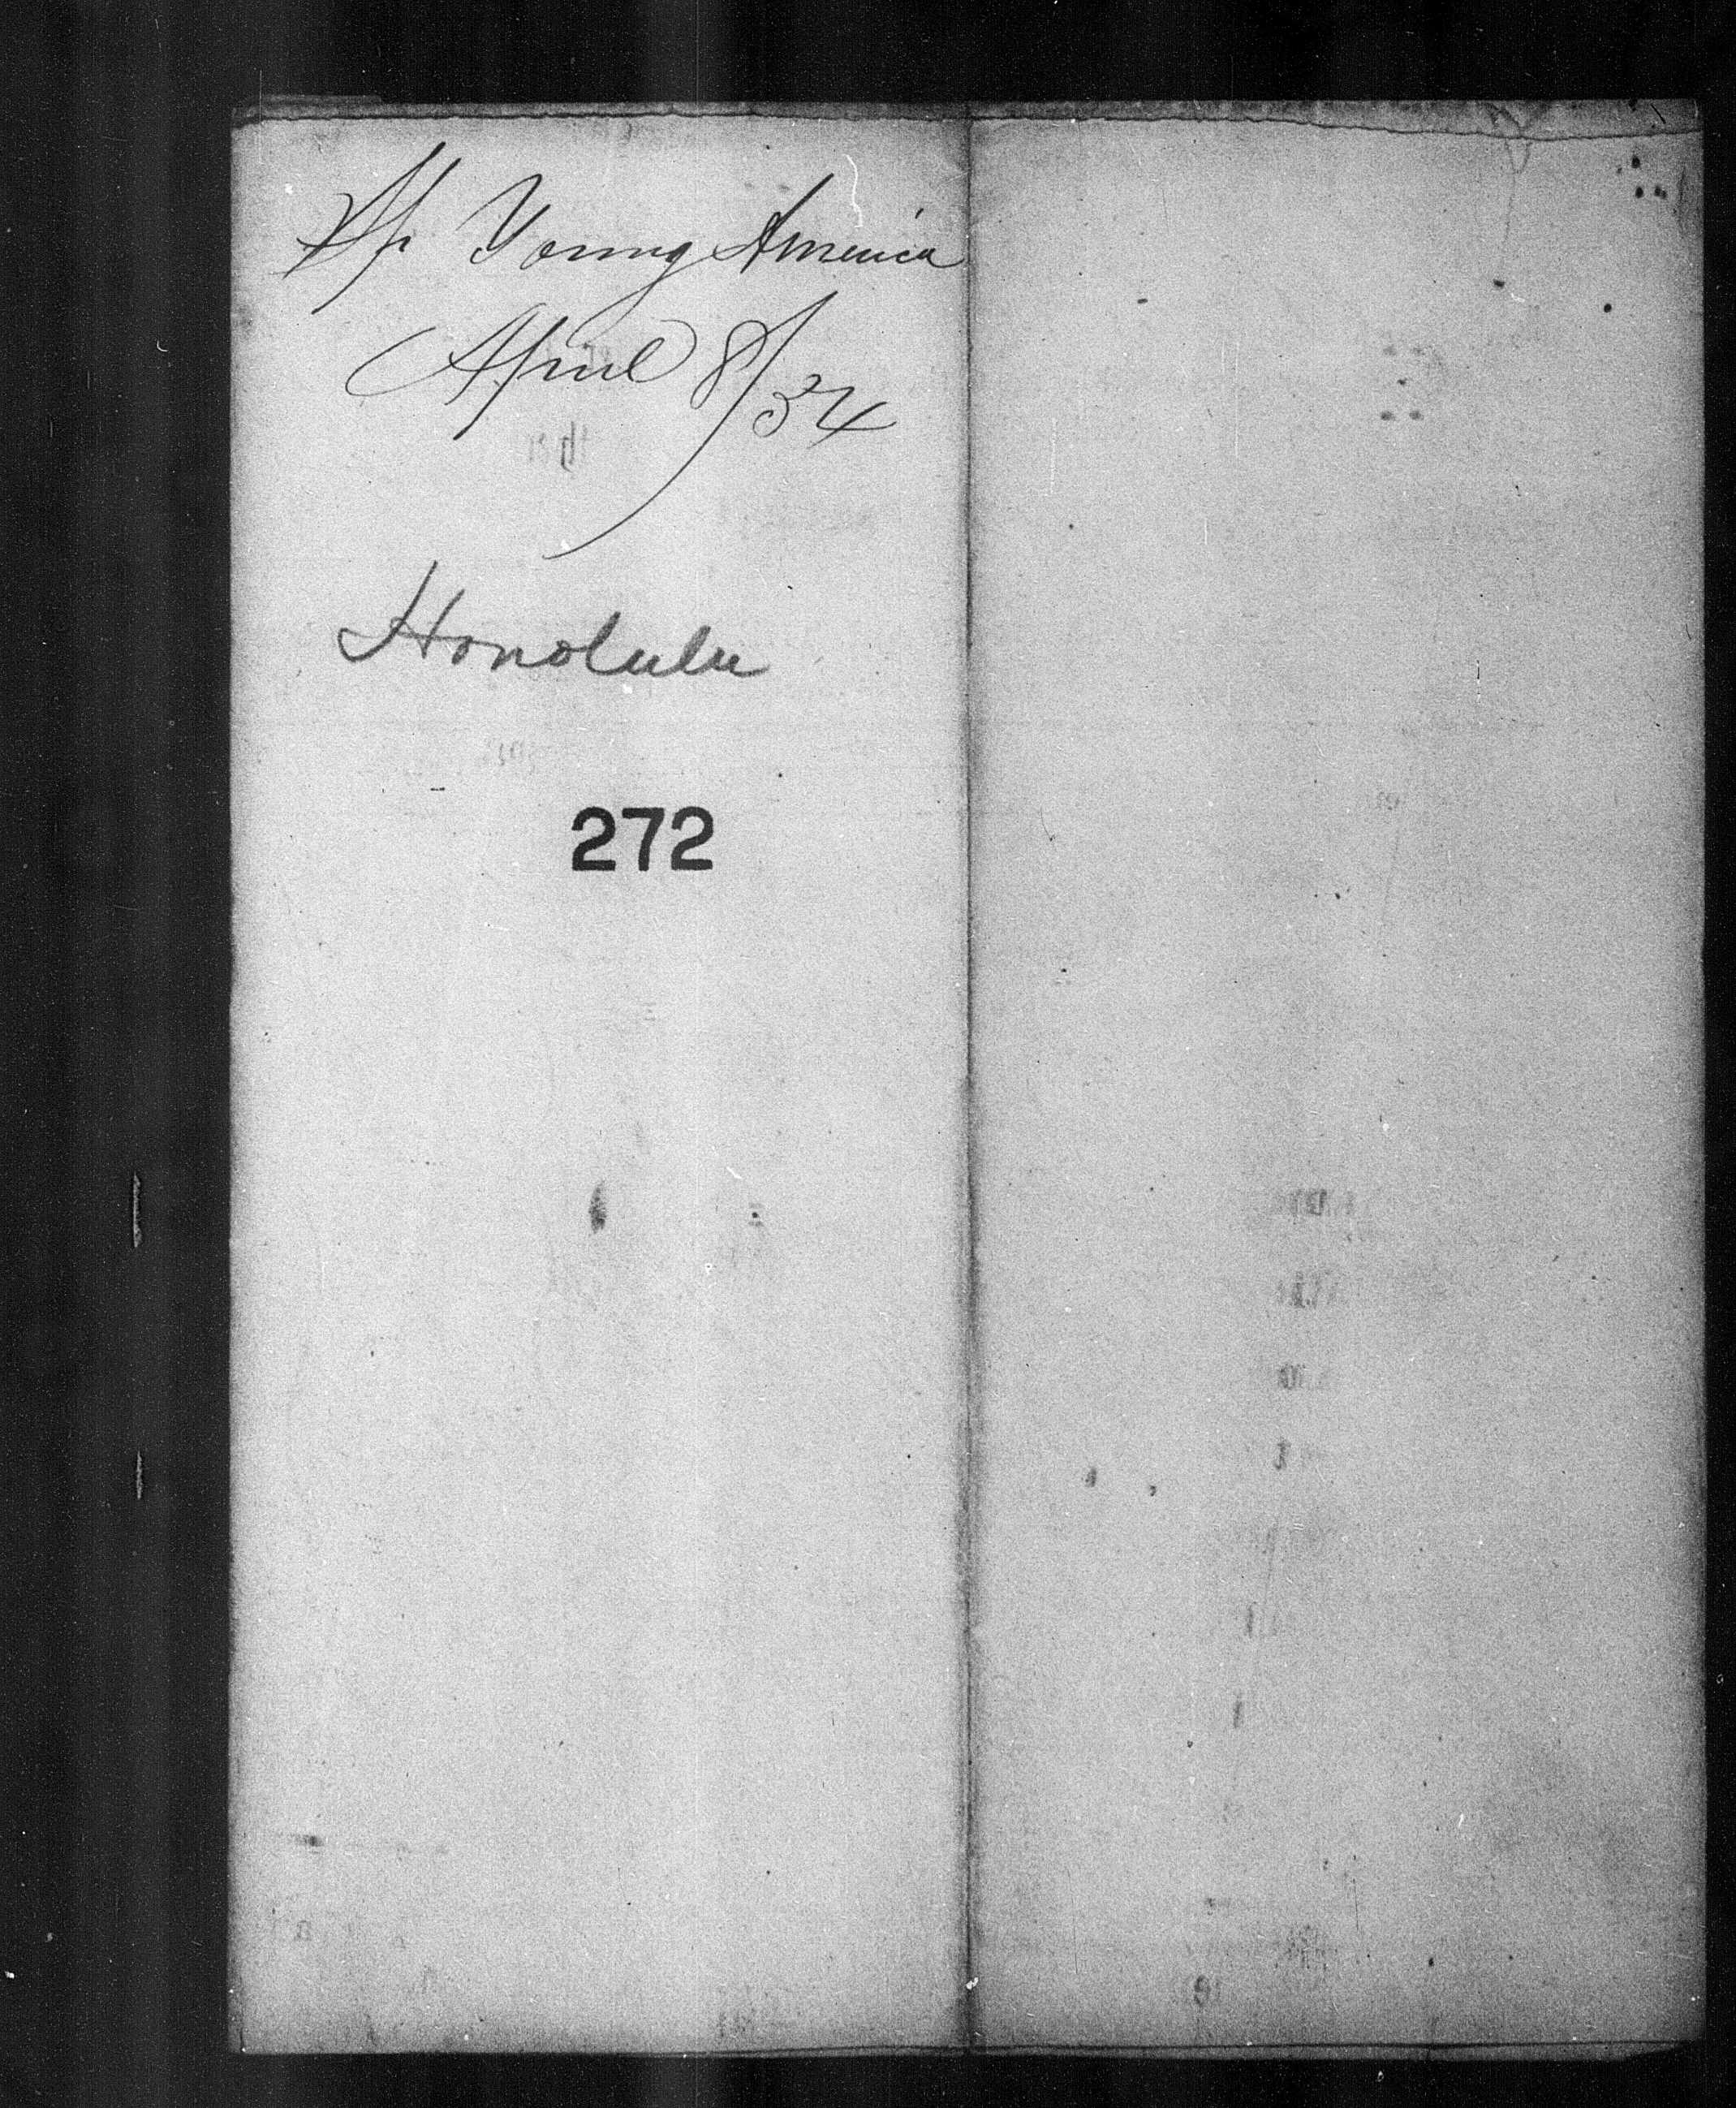 Young America
April 8/54
Honolulu
272